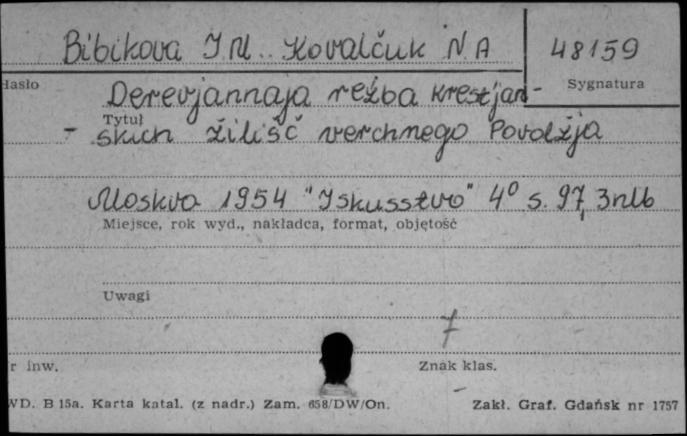 Bibikova I M. Kovalčuk N A
48159
Hasło
Sygnatura
Derevjannaja rež'ba krest'jan-
Tytuł
skich žilišč verchnego Povolžja
Moskva 1954 "Iskusstvo" 4° s. 97, 3nlb
Miejsce, rok wyd., nakładca, format, objętość
Uwagi
7
r inw.
Znak klas.
WD. B 15a. Karta katal. (z nadr.) Zam. 658/DW/On.
Zakł. Graf. Gdańsk nr 1757